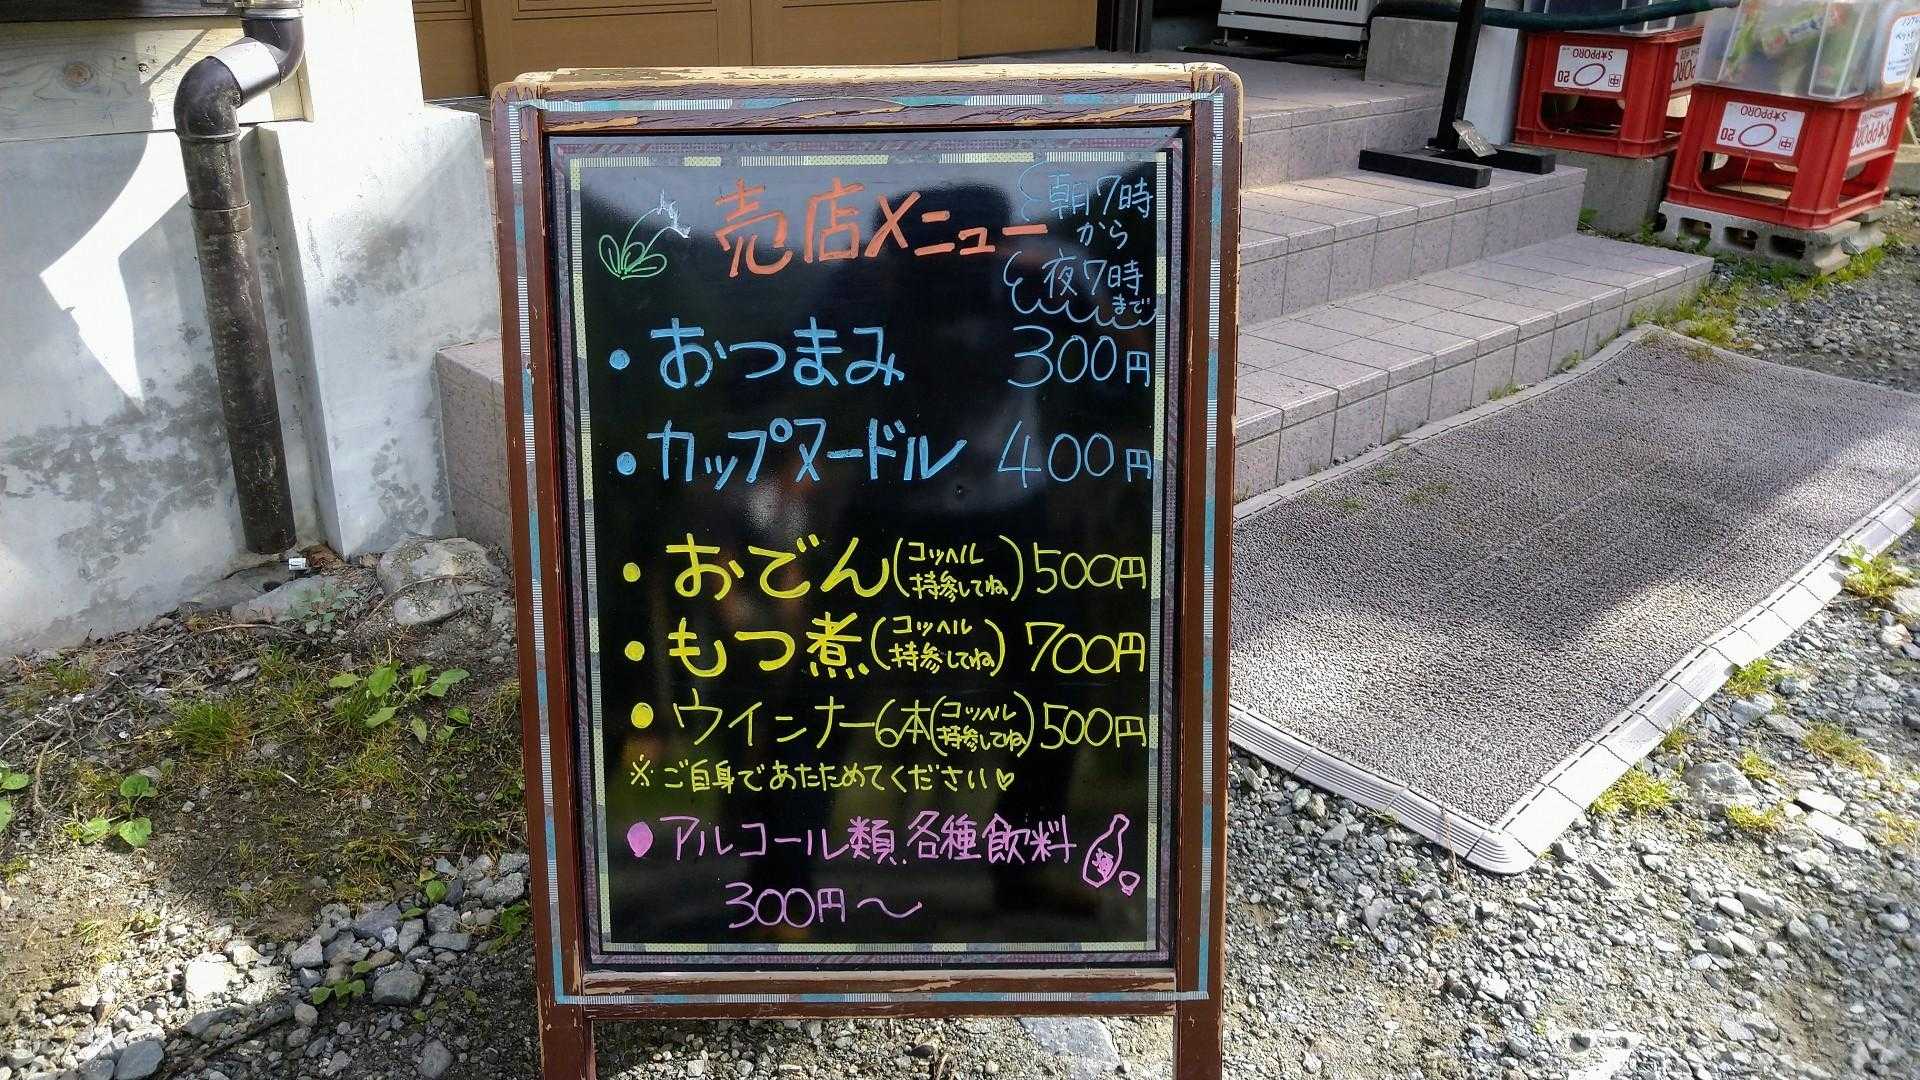 売店メニュー
朝7時
から
夜7時
まで
・おつまみ 300円
・カップヌードル 400円
・おでん(コッヘル持参してね) 500円
・もつ煮(コッヘル持参してね) 700円
・ウインナー6本(コッヘル持参してね) 500円
※ご自身であたためてください♡
・アルコール類、各種飲料
酒
300円～
SAPPORO
20
中
SAPPORO
20
中
SAPPORO